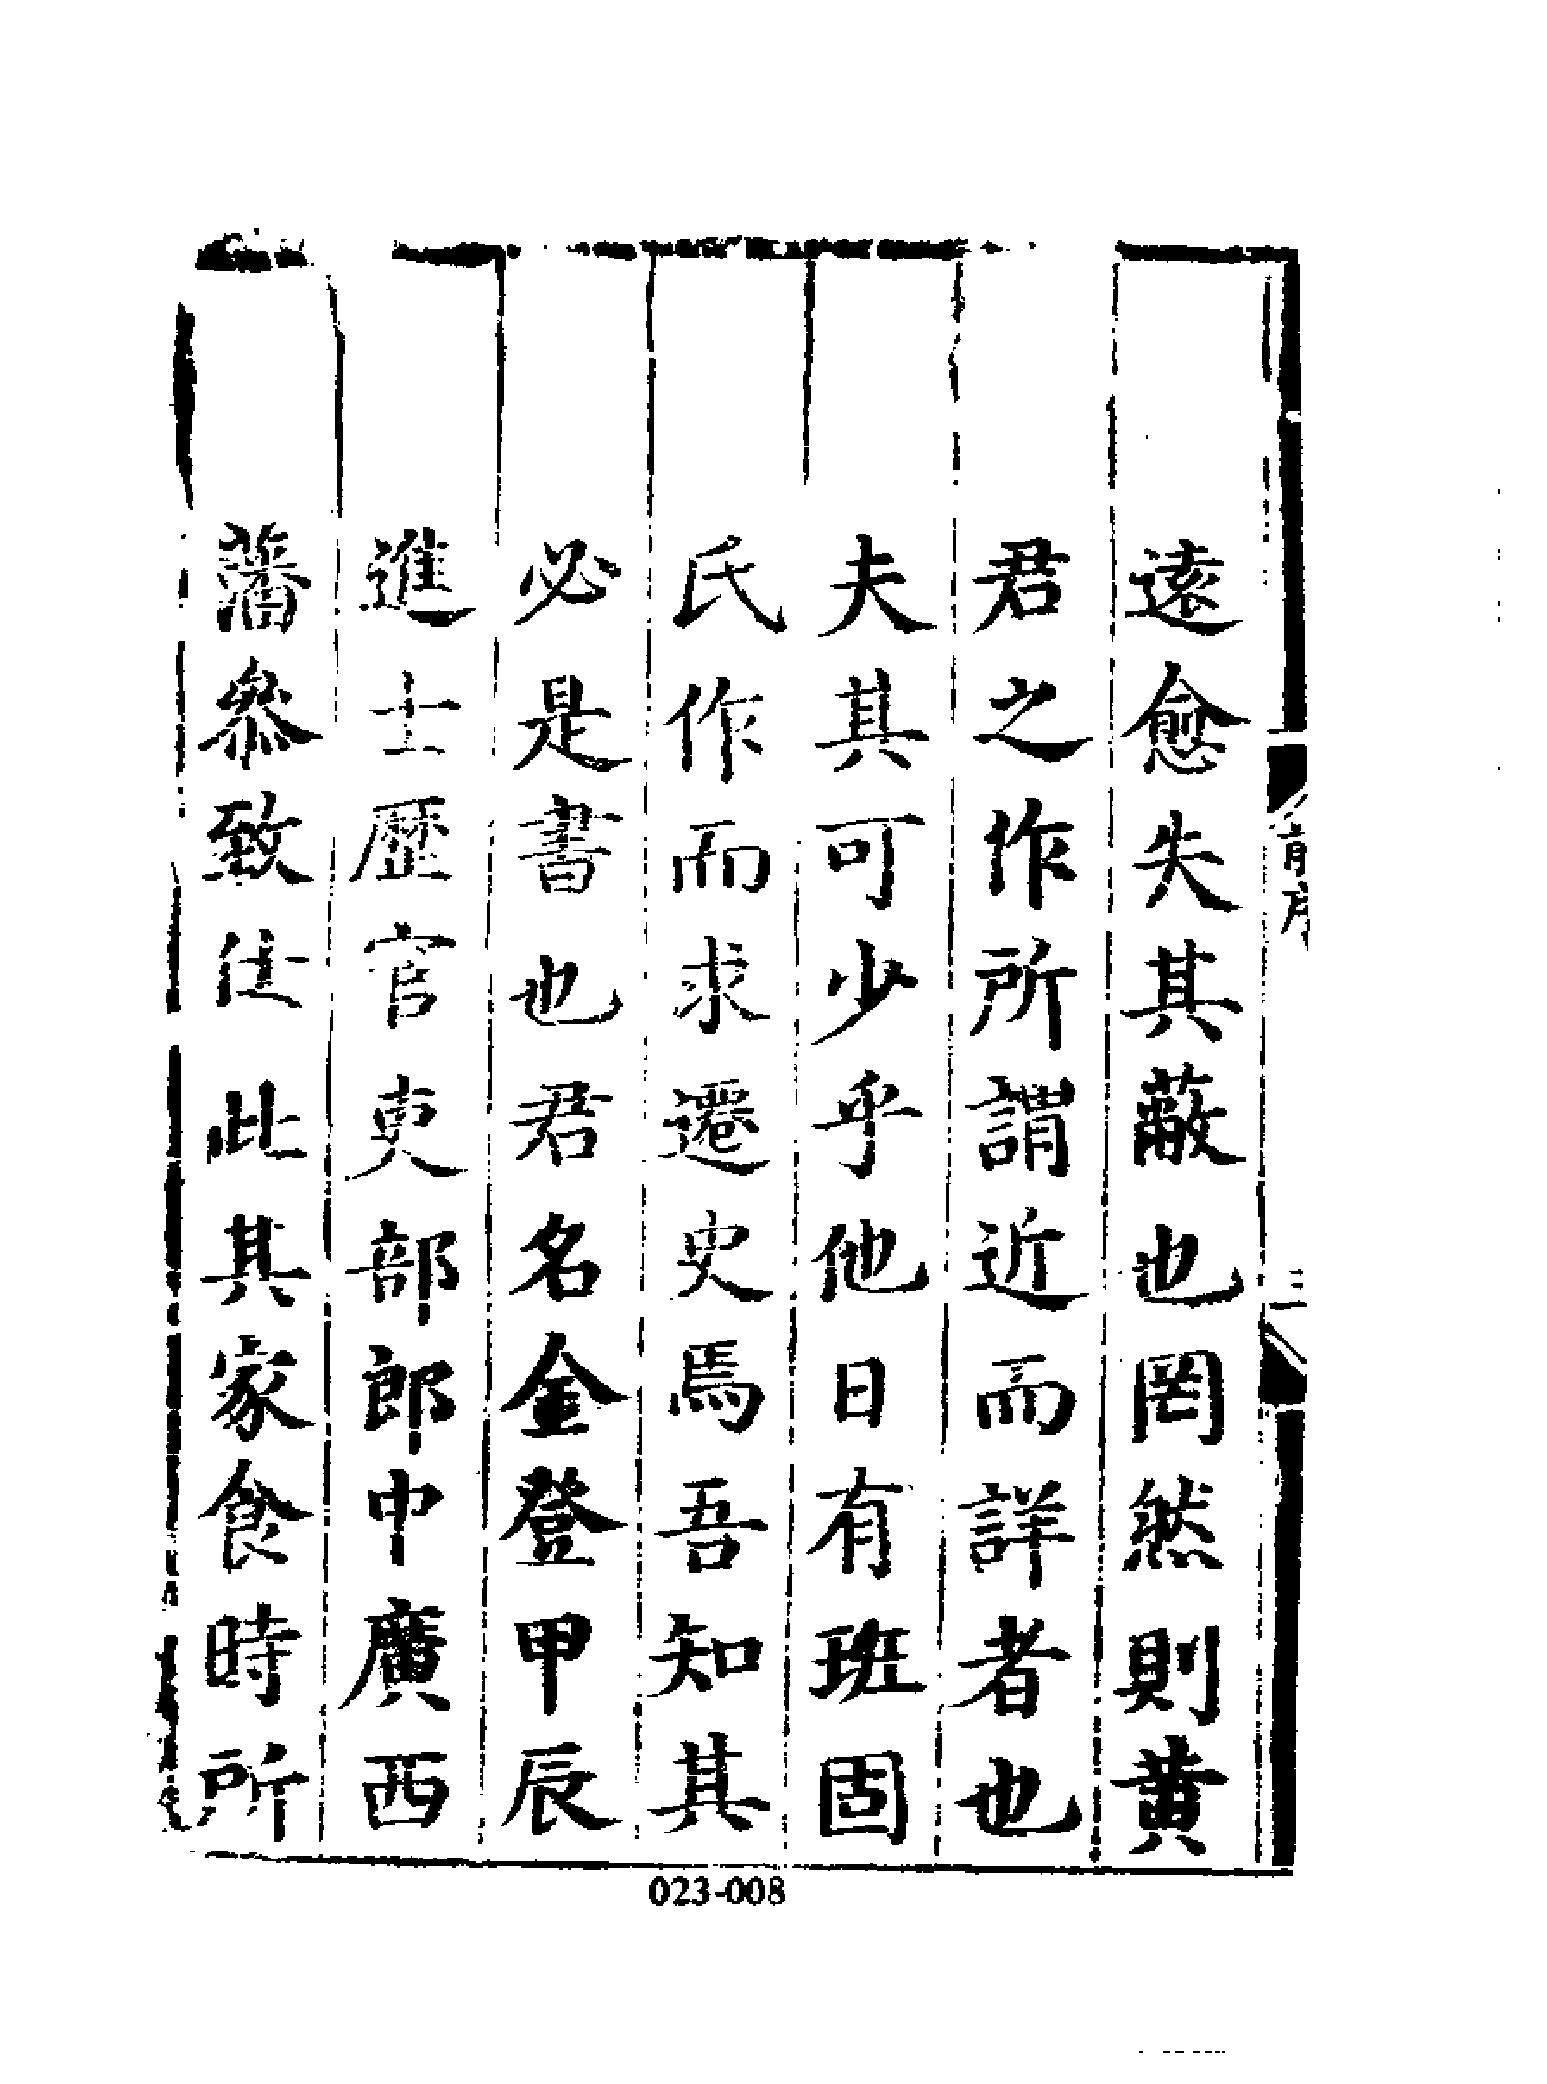 遠愈失其蔽也罔然則黄
君之作所謂近而詳者也
夫其可少乎他日有班固
氏作而求遷史焉吾知其
必是書也君名金登甲辰
進士歷官吏部郎中廣西
藩叅致仕此其家食時所
前序
三
023-008